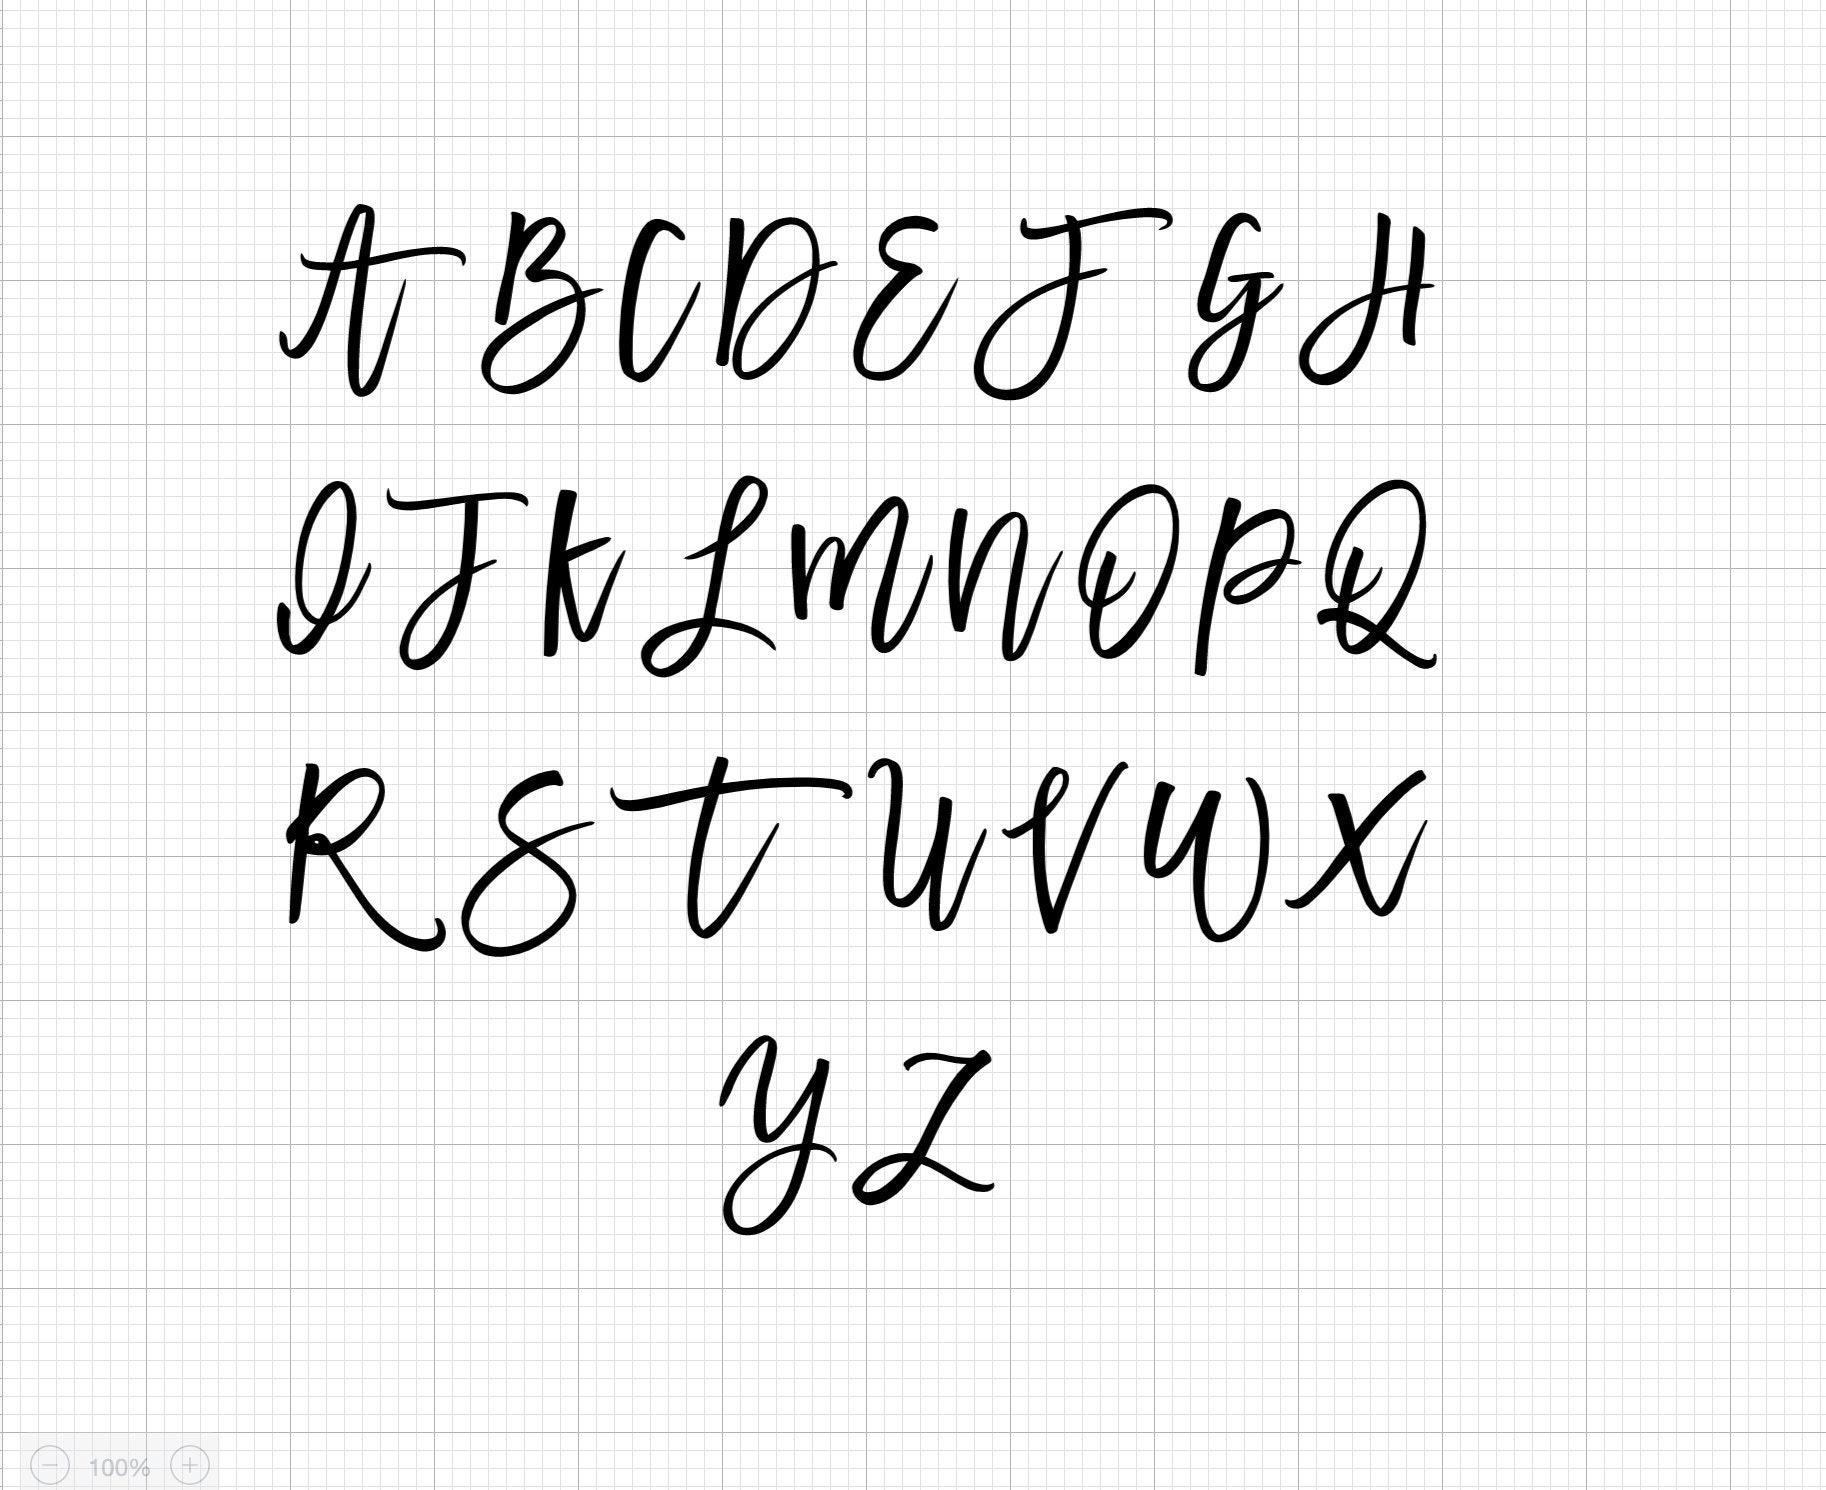 A B C D E F G H
I J K L M N O P Q
R S T U V W X
Y Z
100%